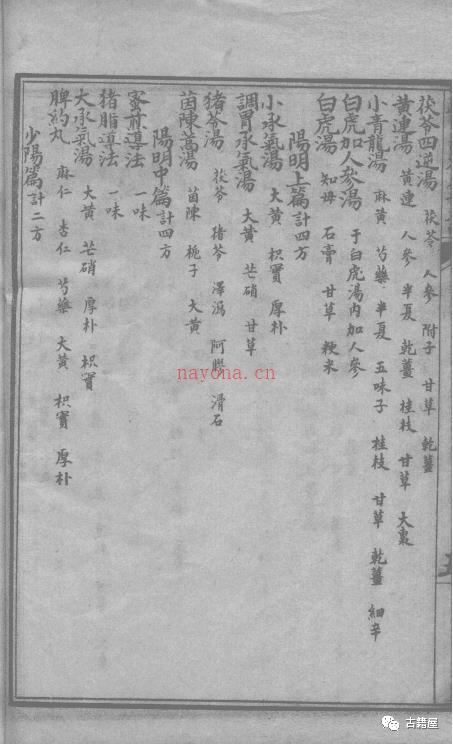 茯苓四逆湯 茯苓 人參 附子 甘草 乾薑
黃連湯 黃連 人參 半夏 乾薑 桂枝 甘草 大棗
小青龍湯 麻黃 芍藥 半夏 五味子 桂枝 甘草 乾薑 細辛
白虎加人參湯 于白虎湯內加人參
白虎湯 知母 石膏 甘草 粳米
陽明上篇計四方
小承氣湯 大黃 枳實 厚朴
調胃承氣湯 大黃 芒硝 甘草
猪苓湯 茯苓 猪苓 澤瀉 阿膠 滑石
茵陳蒿湯 茵陳 梔子 大黃
陽明中篇計四方
蜜煎導法 一味
猪脂導法 一味
大承氣湯 大黃 芒硝 厚朴 枳實
脾約丸 麻仁 杏仁 芍藥 大黃 枳實 厚朴
少陽篇計二方
nayona.cn
古籍屋